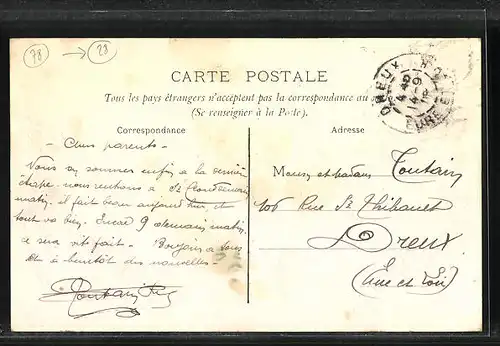 78 → 28
CARTE POSTALE
Tous les pays étrangers n'acceptent pas la correspondance au
(Se renseigner à la Poste).
Correspondance
Chers parents
Nous y sommes enfin, à la dernière
étape, nous rentrons à St Cloud demain
matin, il fait beau aujourd'hui, et
tout va bien. Encore 9 demain matin,
ce sera vit fait - à tous
à bientôt des nouvelles -
Toutain
Adresse
Monsr et madame Toutain
106 Rue St Thibault
Dreux
(Eure et Loir)
DREUX
4 40
14-9
EURE-ET-